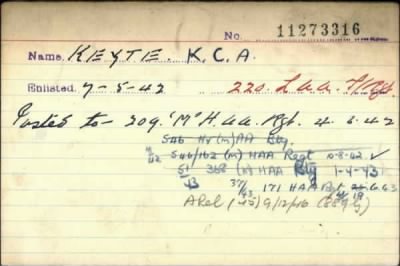 No. 11273316
Name KEYTE. K.C.A.
Enlisted. 7-5-42 220. L AA T/Rgt.
Posted to - 209. "M" H.AA. Rgt. 4.6.42
546 Hy (m) AA Bty.
42 546/162 (m) HAA Regt 10-8-42 ✓
51/43 368 (m) HAA Bty 1-4-43
37/43 171 HAA Rgt 6.63
A Rel (45) 9/12/46